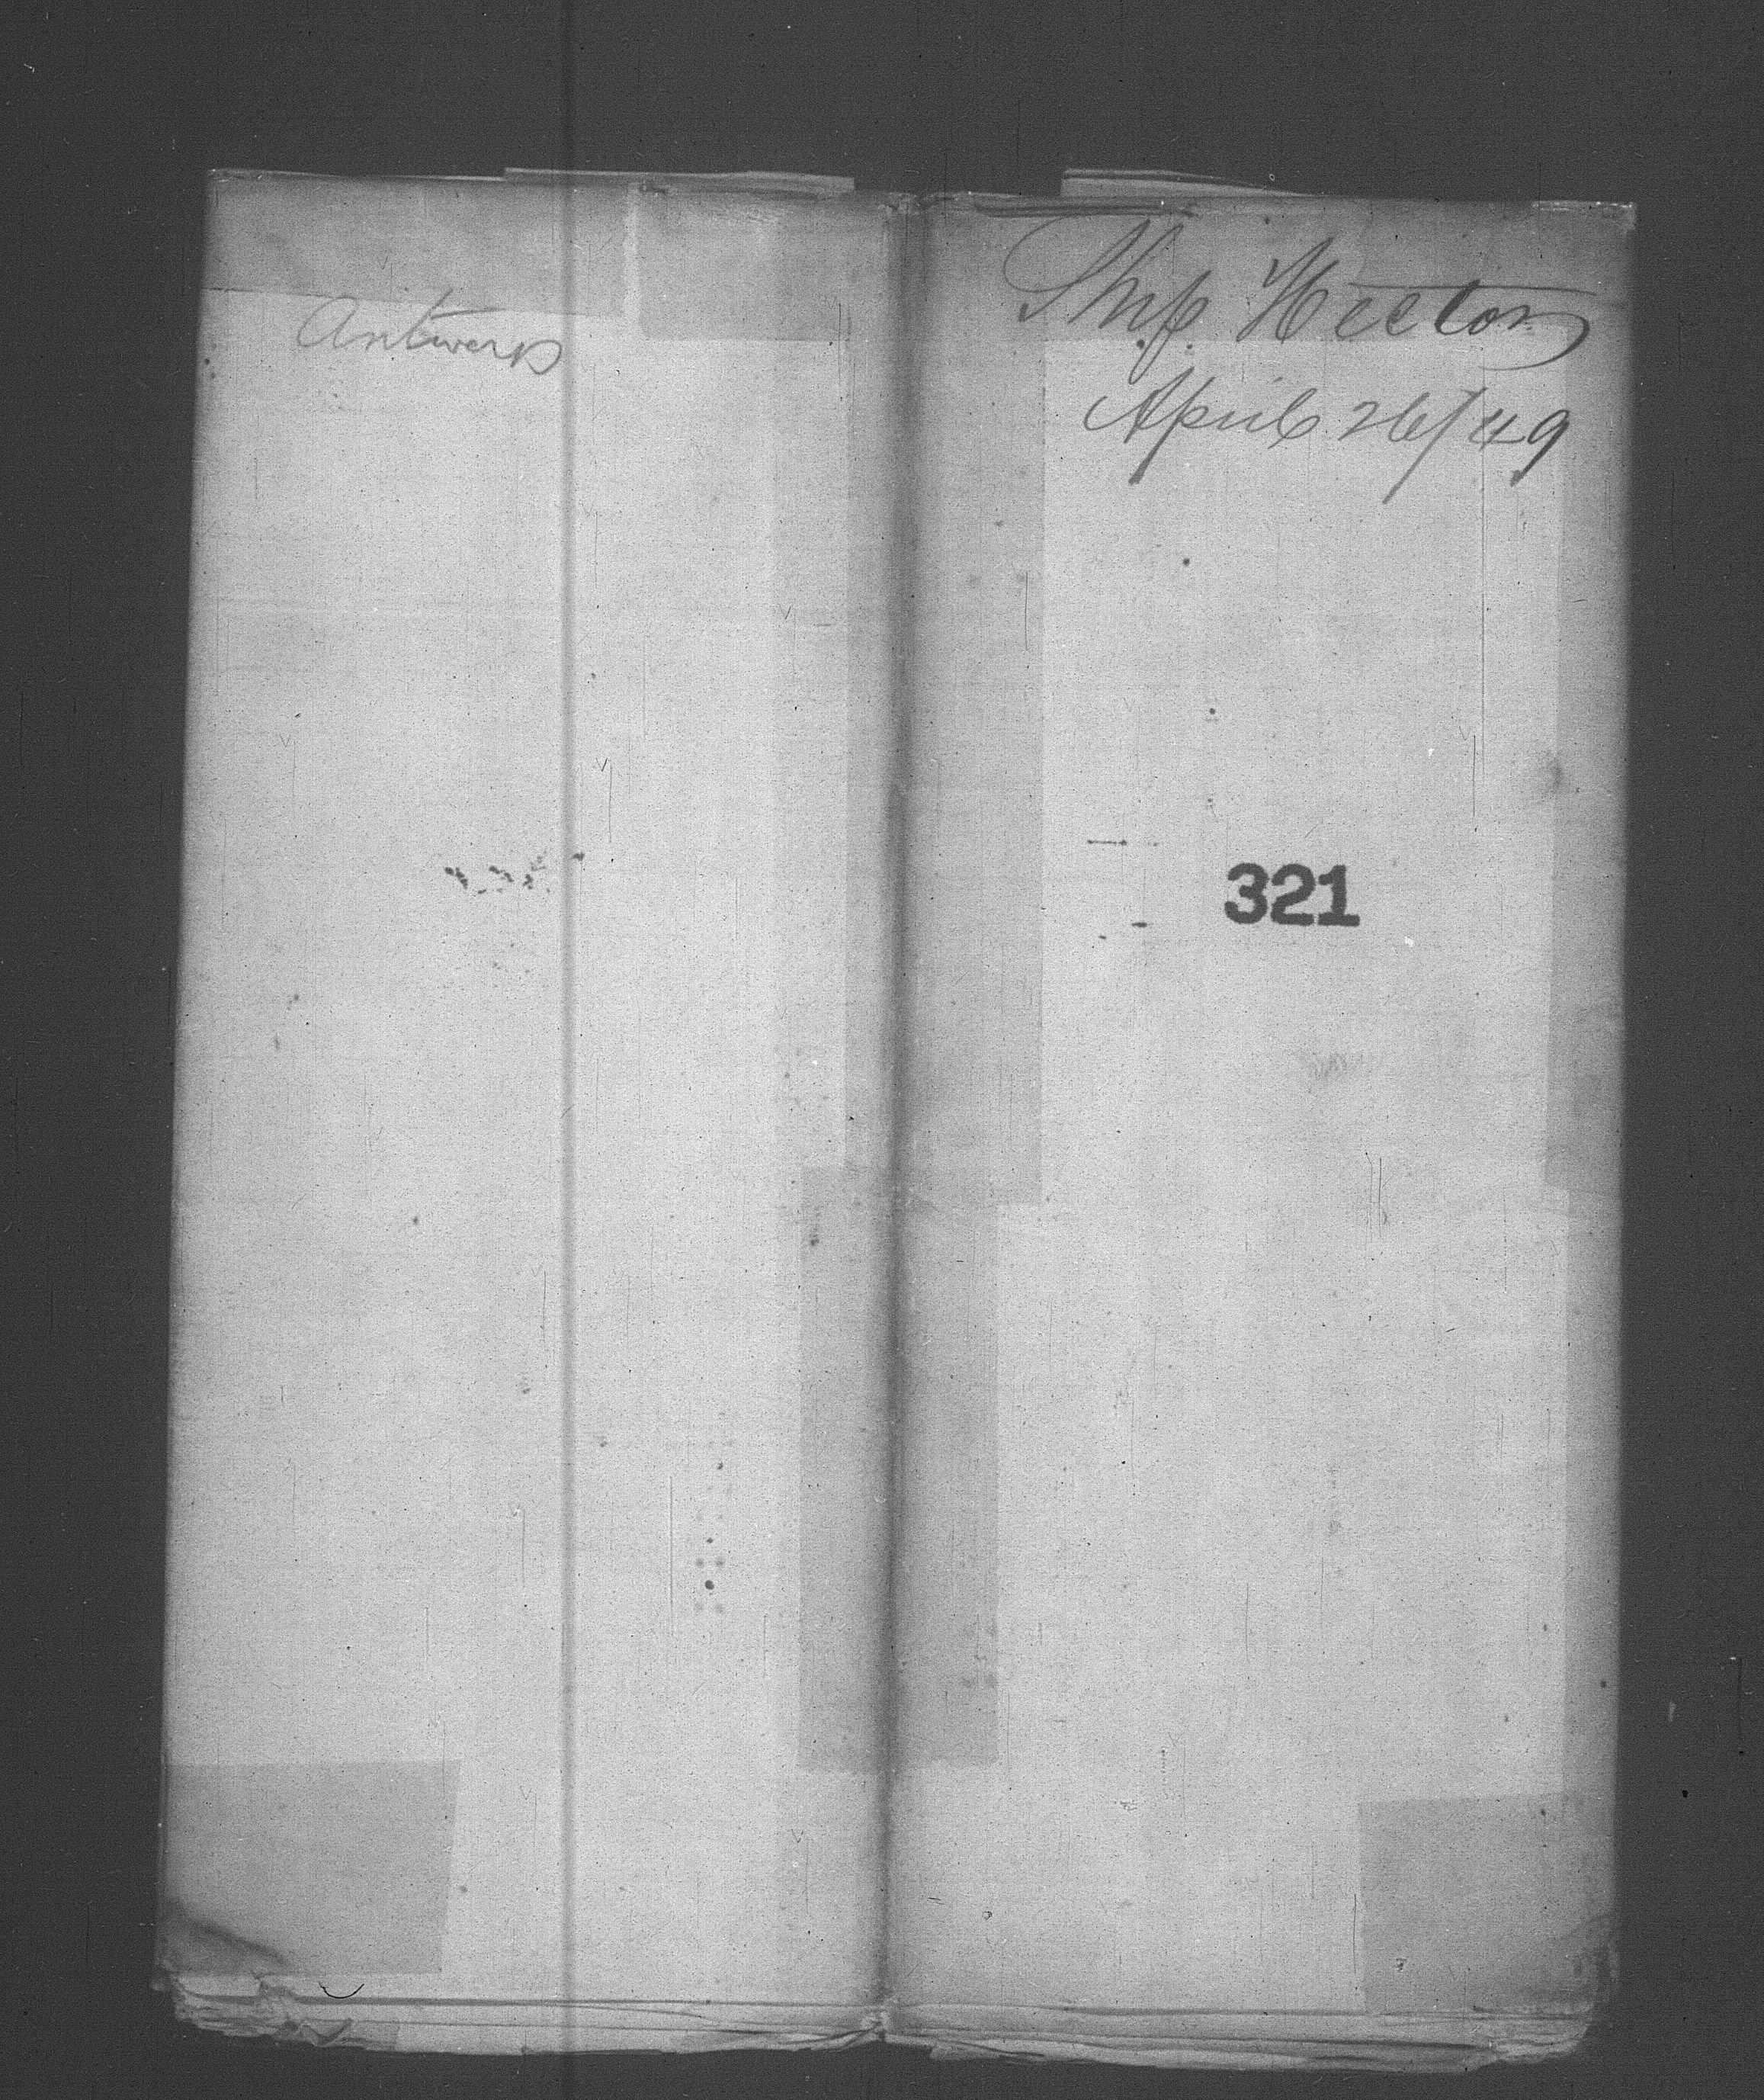 Antwerp
Ship Hector
April 26/49
321